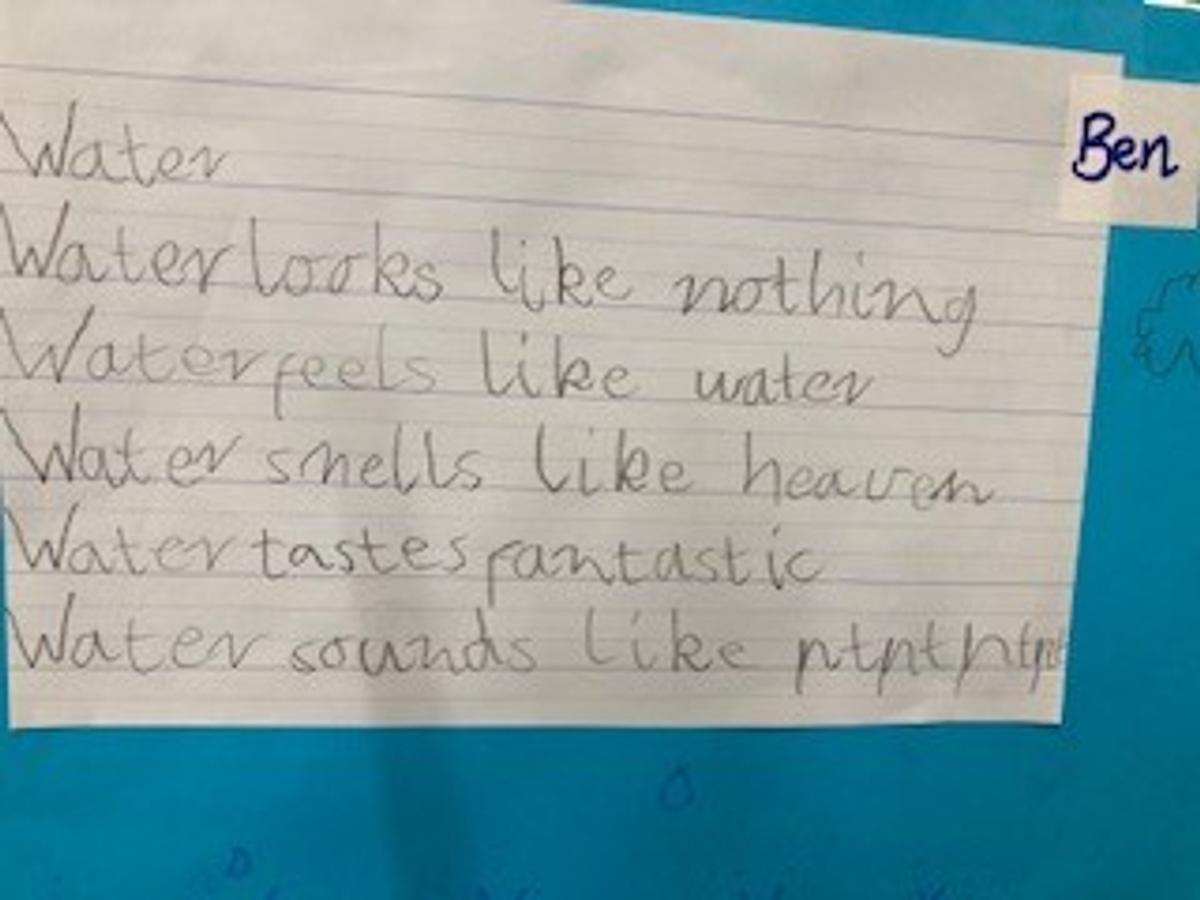 Water
Ben
Water looks like nothing
Water feels like water
Water smells like heaven
Water tastes fantastic
Water sounds like ptptptpt